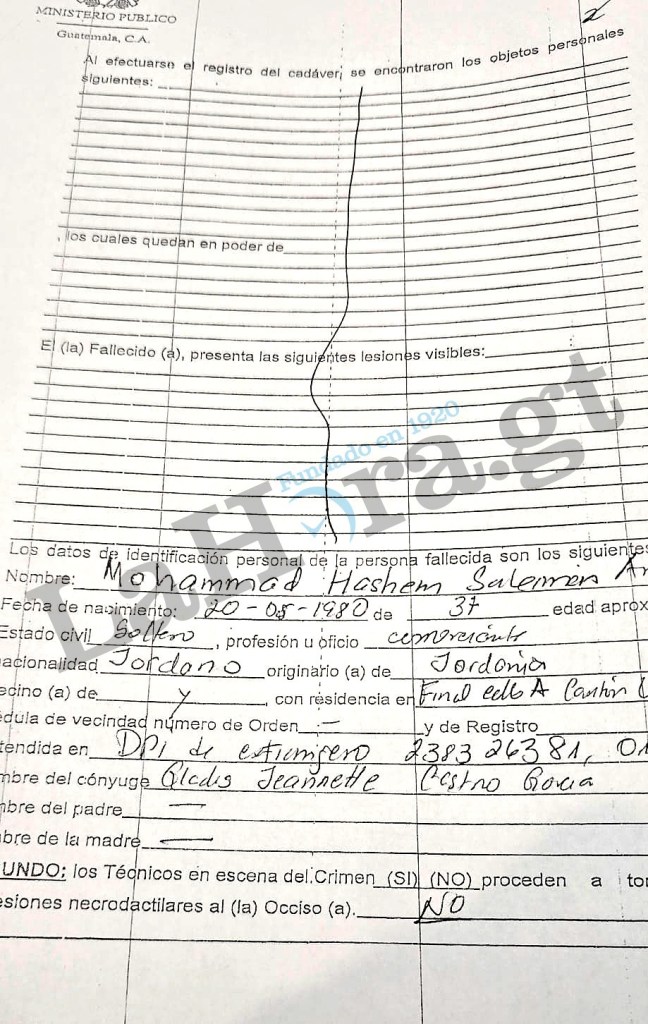 MINISTERIO PUBLICO
Guatemala, C.A.
2
Al efectuarse el registro del cadáver, se encontraron los objetos personales
siguientes:
, los cuales quedan en poder de
El (la) Fallecido (a), presenta las siguientes lesiones visibles:
LaHora.gt
Fundado en 1920
Los datos de identificación personal de la persona fallecida son los siguientes
Nombre: Mohammad Hashem
Fecha de nacimiento: 20-05-1980 de 37 edad aprox
Estado civil Soltero, profesión u oficio comerciante
nacionalidad Jordano originario (a) de Jordania
ecino (a) de y, con residencia en Final Cantón
édula de vecindad número de Orden — y de Registro
tendida en DPI de extranjero 2383 26381, 01
mbre del cónyuge Gladis Jeannette Castro Garcia
mbre del padre —
bre de la madre —
UNDO: los Técnicos en escena del Crimen (SI) (NO) proceden a tor
esiones necrodactilares al (la) Occiso (a). NO